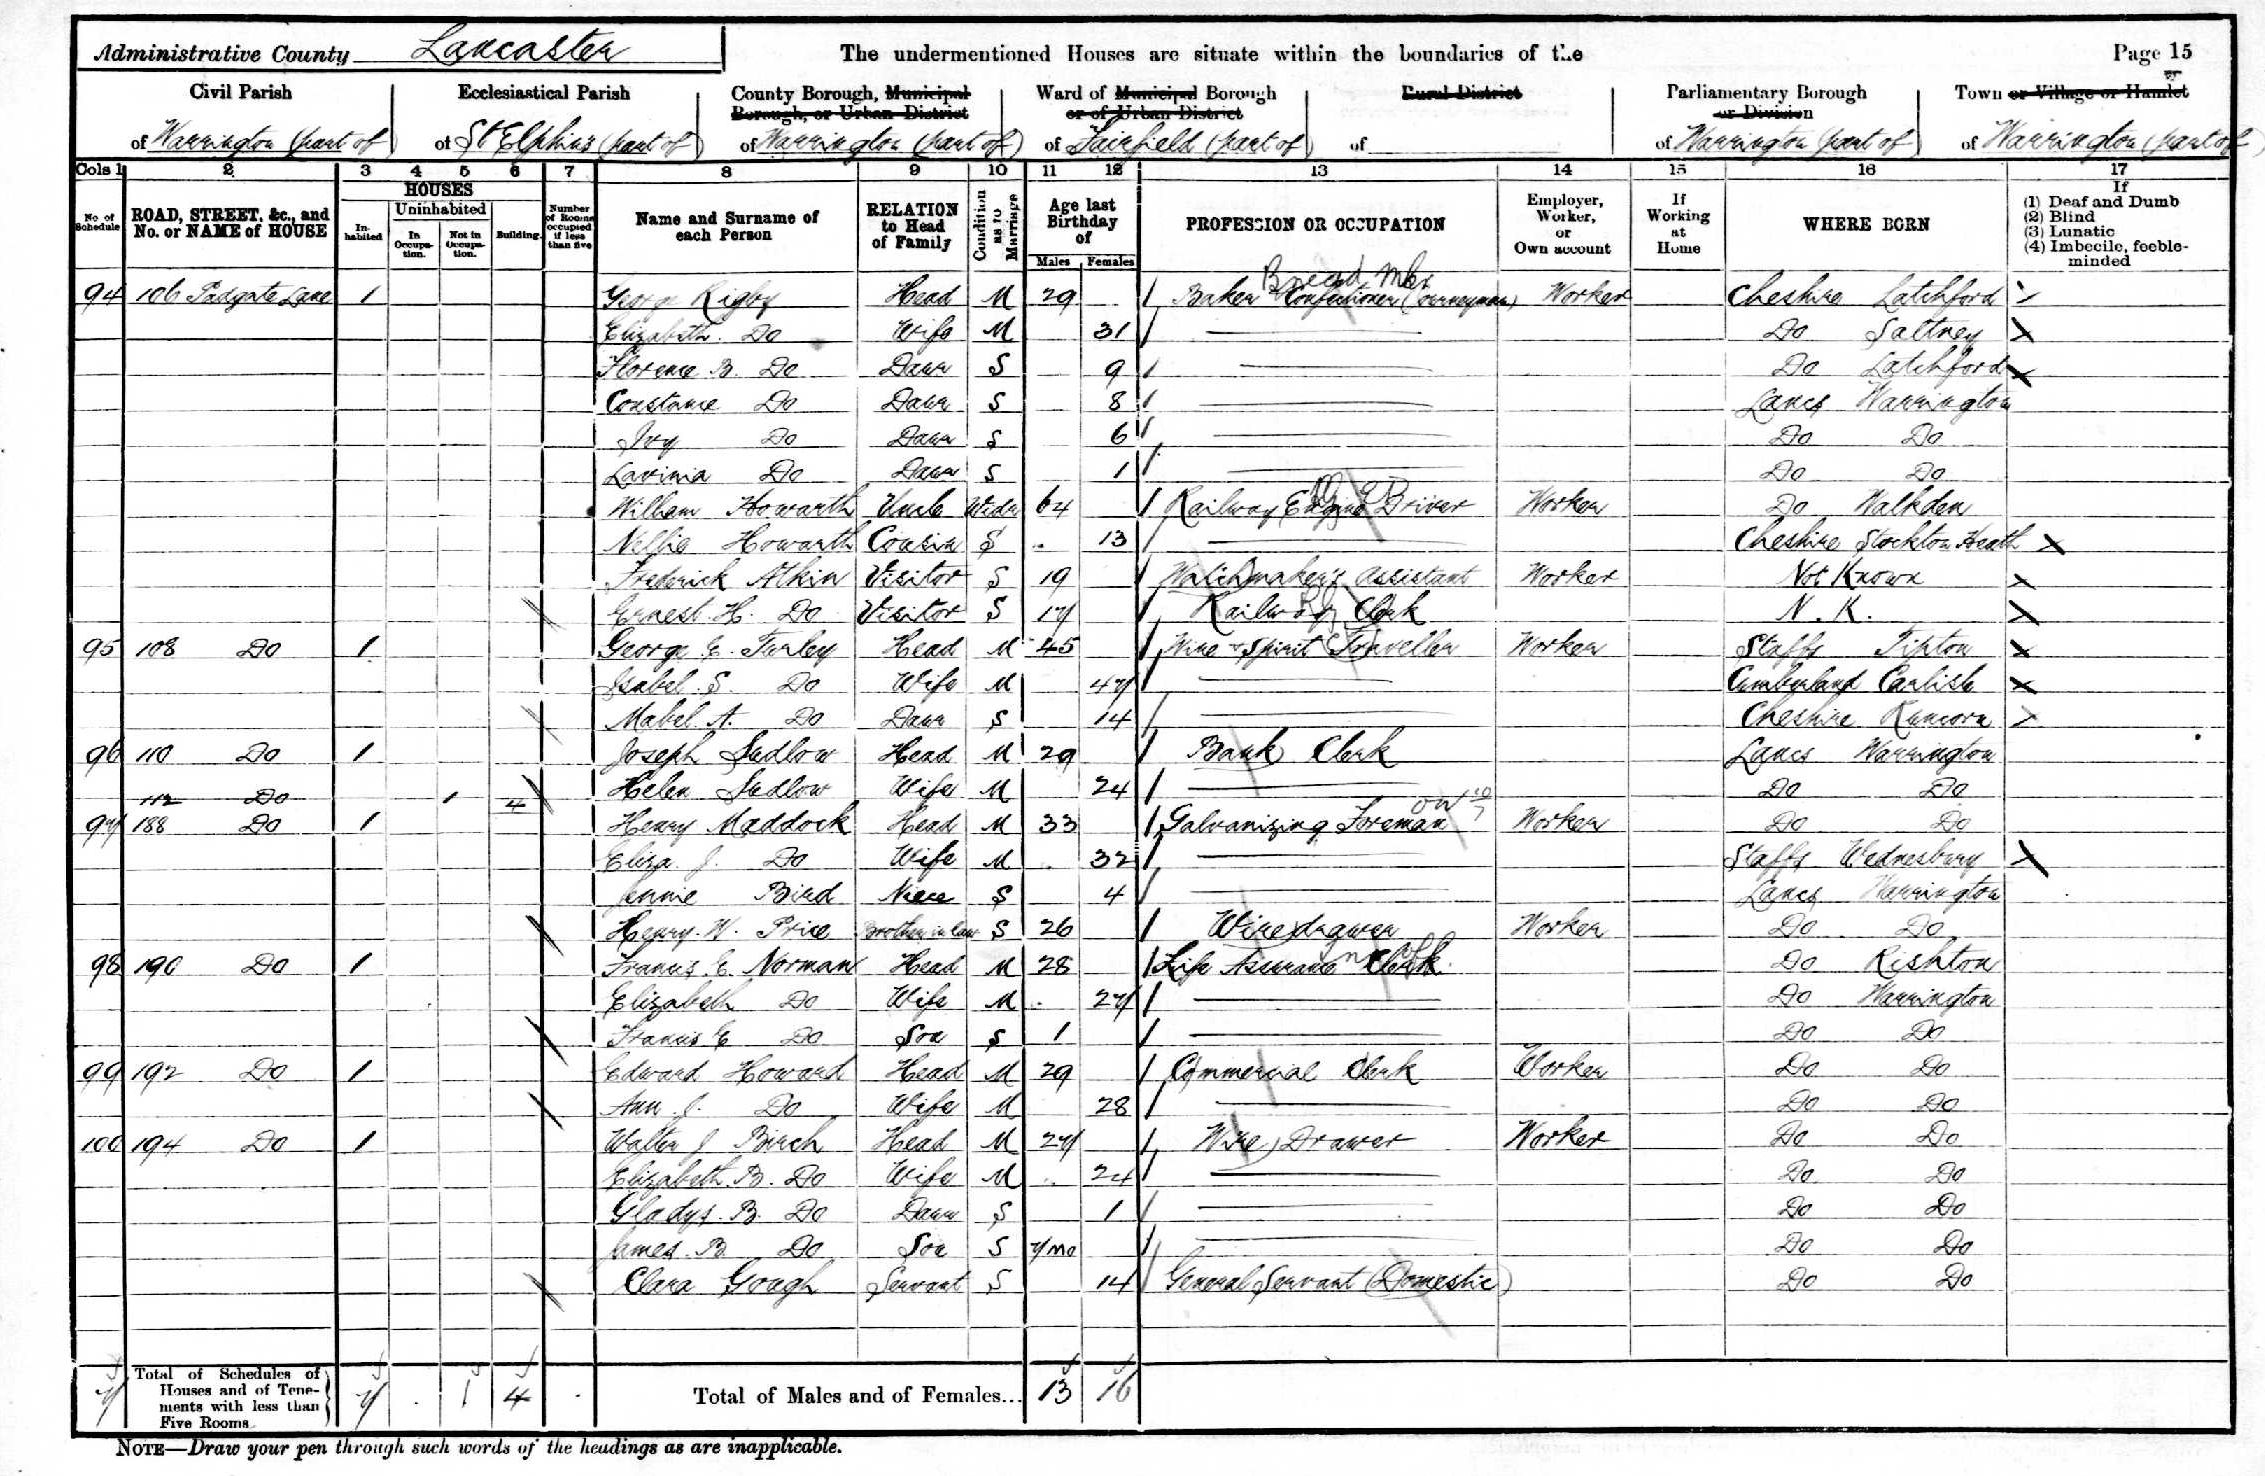 Administrative County Lancaster The undermentioned Houses are situate within the boundaries of the Page 15
Civil Parish Ecclesiastical Parish County Borough, Municipal Borough, or Urban District Ward of Municipal Borough or of Urban District Rural District Parliamentary Borough or Division Town or Village or Hamlet
of Warrington (part of) of St Elphins (part of) of Warrington (part of) of Fairfield (part of) of of Warrington (part of) of Warrington (part of)
Cols 1 2 3 4 5 6 7 8 9 10 11 12 13 14 15 16 17
No of Schedule ROAD, STREET, &c., and No. or NAME of HOUSE HOUSES Inhabited Uninhabited In Occupation. Not in Occupation. Building. Number of Rooms occupied if less than five Name and Surname of each Person RELATION to Head of Family Condition as to Marriage Age last Birthday of Males Females PROFESSION OR OCCUPATION Employer, Worker, or Own account If Working at Home WHERE BORN If (1) Deaf and Dumb (2) Blind (3) Lunatic (4) Imbecile, feeble-minded
Bread Mkr
94 106 Padgate Lane 1 George Rigby Head M 29 Baker Confectioner (Journeyman) Worker Cheshire Latchford
Elizabeth Do Wife M 31 Do Saltney
Florence B. Do Daur S 9 Do Latchford
Constance Do Daur S 8 Lancs Warrington
Ivy Do Daur S 6 Do Do
Lavinia Do Daur S 1 Do Do
William Howarth Uncle Widr 64 Railway Engine Driver Worker Do Walkden
Nellie Howarth Cousin S 13 Cheshire Stockton Heath
Frederick Atkin Visitor S 19 Watchmaker's Assistant Worker Not Known
Ernest H. Do Visitor S 17 Railway Clerk N.K.
95 108 Do 1 George E. Turley Head M 45 Wine & Spirit Traveller Worker Staffs Tipton
Isabel S. Do Wife M 47 Cumberland Carlisle
Mabel A. Do Daur S 14 Cheshire Runcorn
96 110 Do 1 Joseph Sudlow Head M 29 Bank Clerk Lancs Warrington
112 Do 1 4 Helen Sudlow Wife M 24 Do Do
97 188 Do 1 Henry Maddock Head M 33 Galvanizing Foreman Worker Do Do
Eliza J. Do Wife M 32 Staffs Wednesbury
Jennie Bird Niece S 4 Lancs Warrington
Henry W. Price Brother in law S 26 Wire drawer Worker Do Do
98 190 Do 1 Francis E. Norman Head M 28 Life Assurance Clerk Do Rishton
Elizabeth Do Wife M 27 Do Warrington
Francis E Do Son S 1 Do Do
99 192 Do 1 Edward Howard Head M 29 Commercial Clerk Worker Do Do
Ann J. Do Wife M 28 Do Do
100 194 Do 1 Walter J Birch Head M 27 Wire Drawer Worker Do Do
Elizabeth B. Do Wife M 24 Do Do
Gladys B. Do Daur S 1 Do Do
James B Do Son S 7/mo Do Do
Clara Gough Servant S 14 General Servant (Domestic) Do Do
7 Total of Schedules of Houses and of Tenements with less than Five Rooms 7 1 4 Total of Males and of Females... 13 16
NOTE—Draw your pen through such words of the headings as are inapplicable.